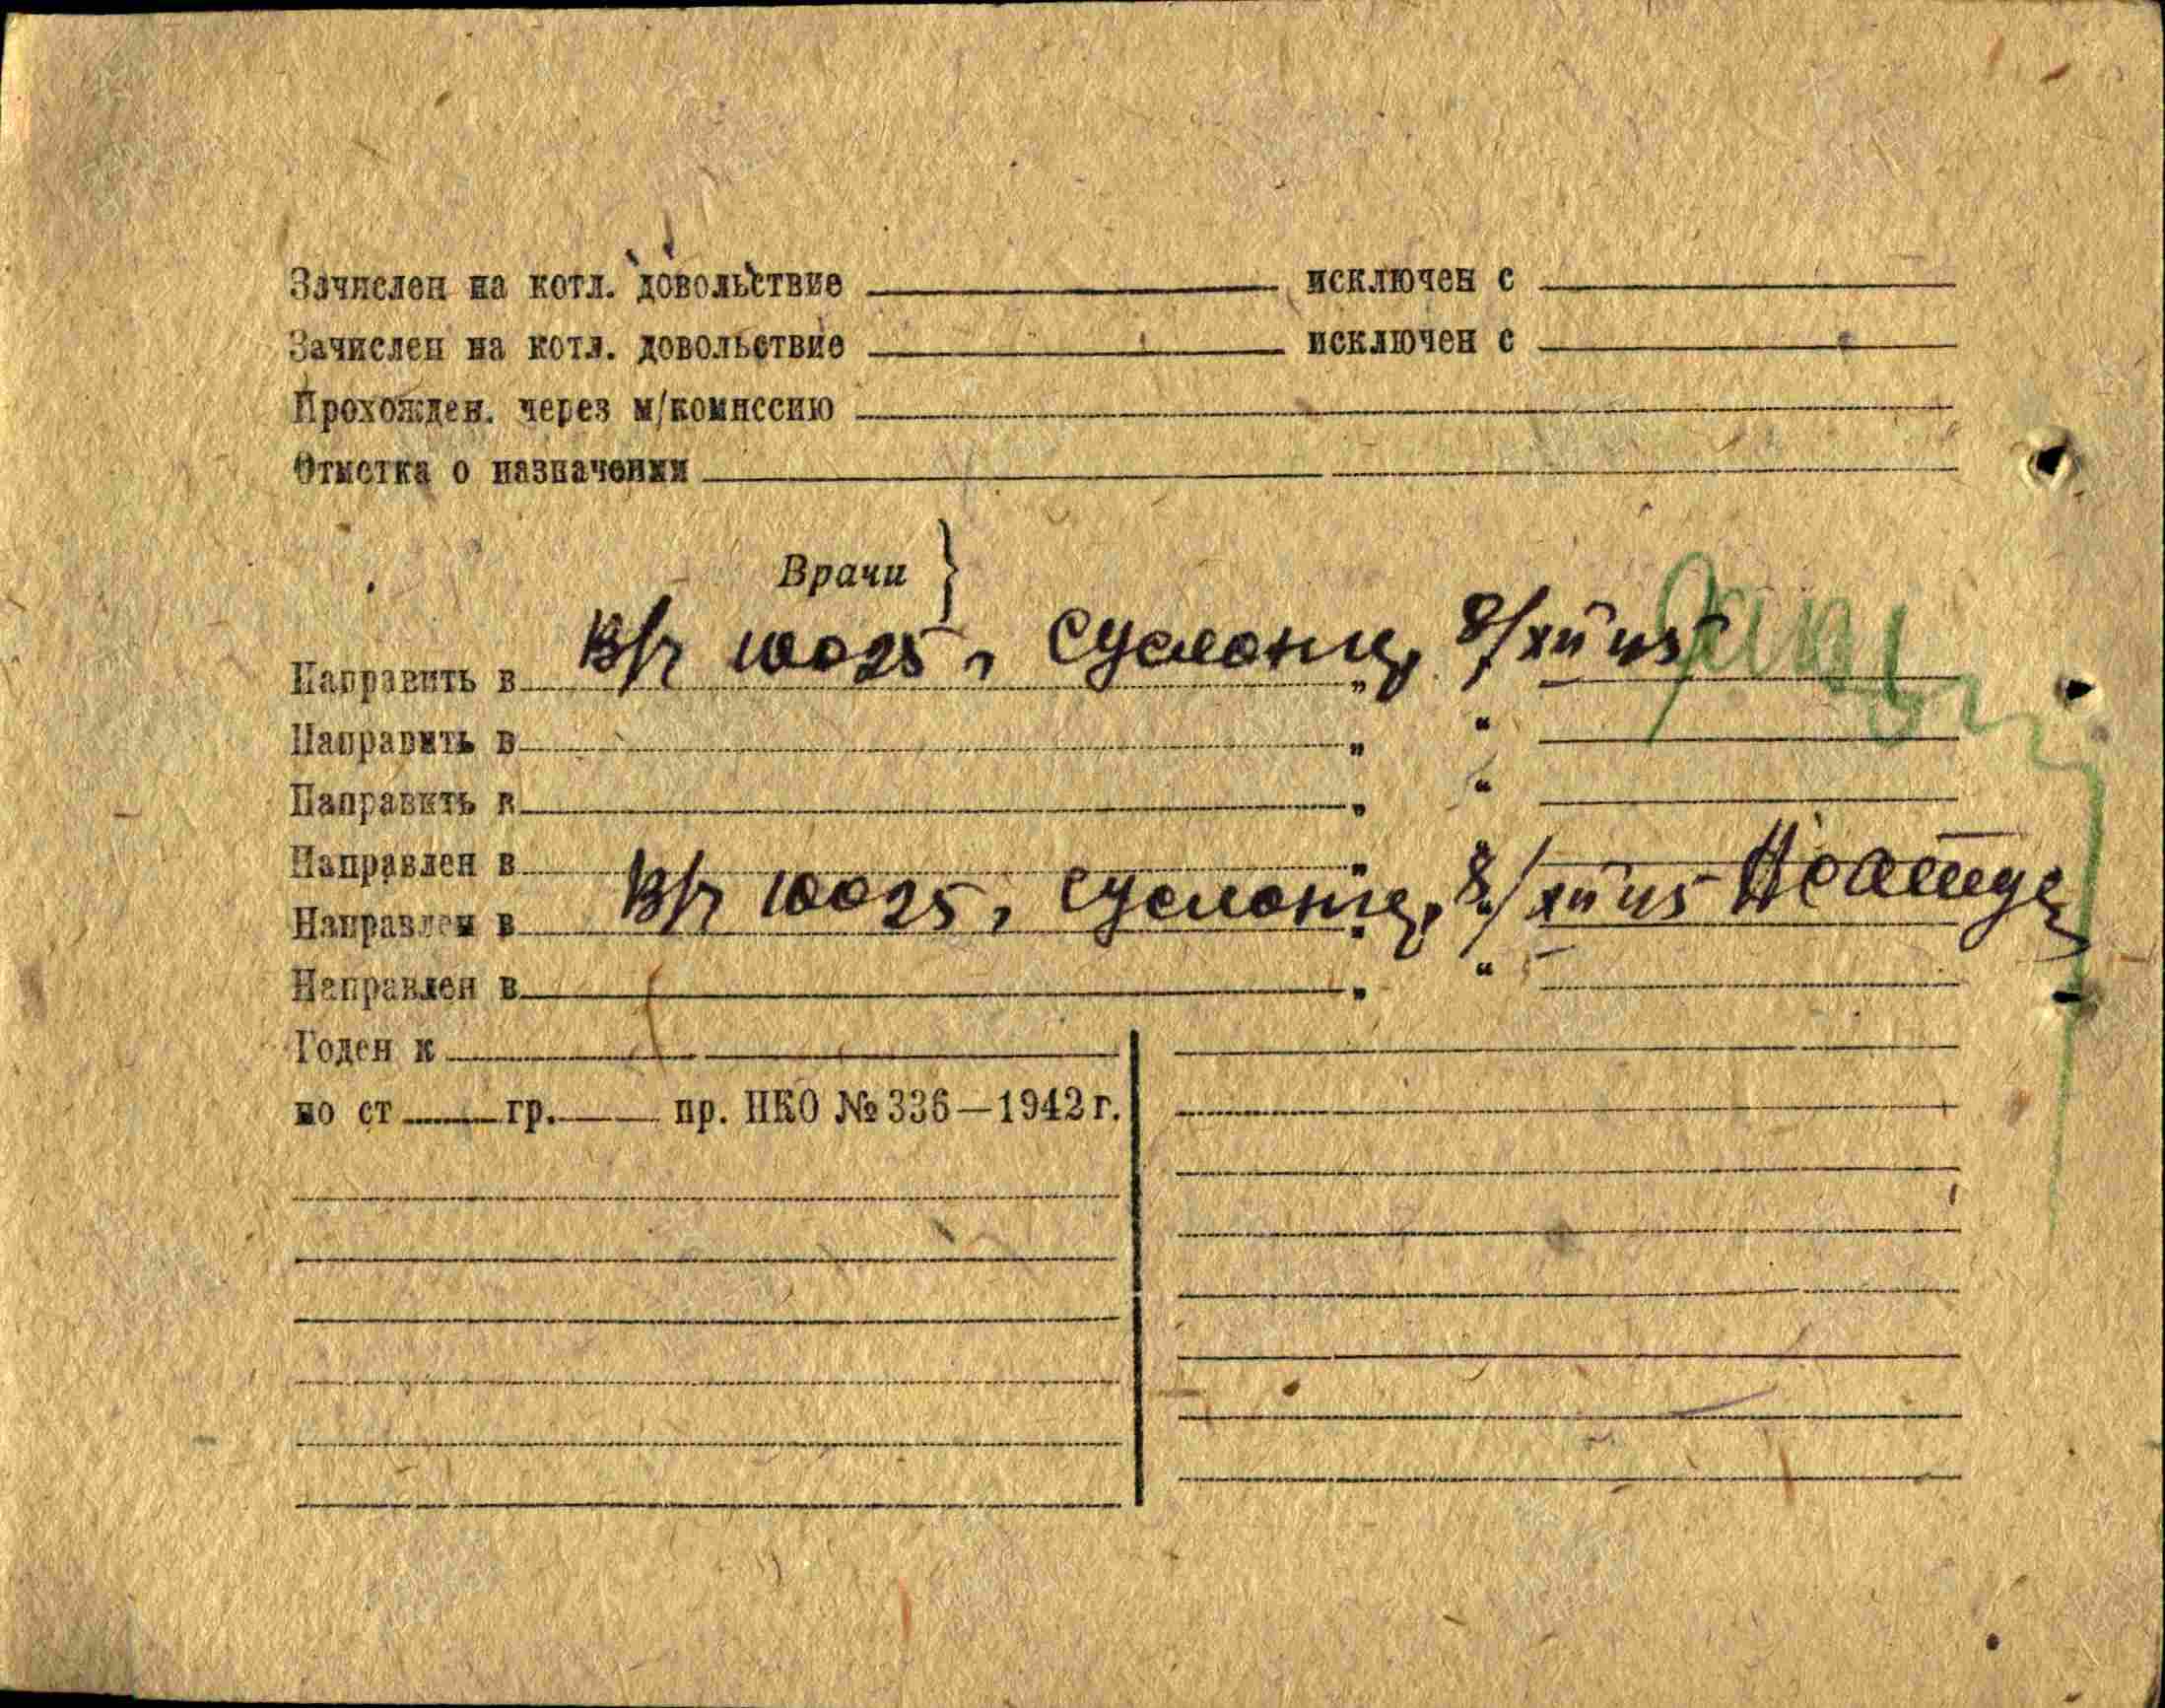 Зачислен на котл. довольствие исключен с
Зачислен на котл. довольствие исключен с
Прохожден. через м/комиссию
Отметка о назначении
Врачи }
Направить в В/ч 10025, Суслонгер 8/XII 45
Направить в „ “
Направить в „ “
Направлен в „
Направлен в В/ч 10025, Суслонгер 8/XII 45
Направлен в „ “
Годен к
по ст гр. пр. НКО № 336—1942 г.